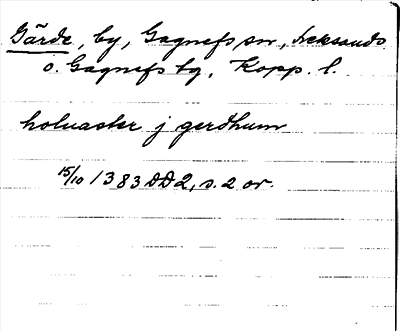 Gärde, by, Gagnefs sn, Leksands
o. Gagnefs tg, Kopp. l.
holuaster j gerdhum
15/10 1383 DD2, s. 2 or.